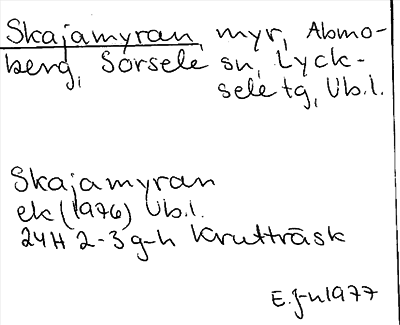 Skajamyran, myr, Abmo-
berg, Sorsele sn, Lyck-
sele tg, Vb.l.
Skajamyran
ek (1976) Vb.l.
24H 2-3 g-h Krutträsk
E.J-n 1977